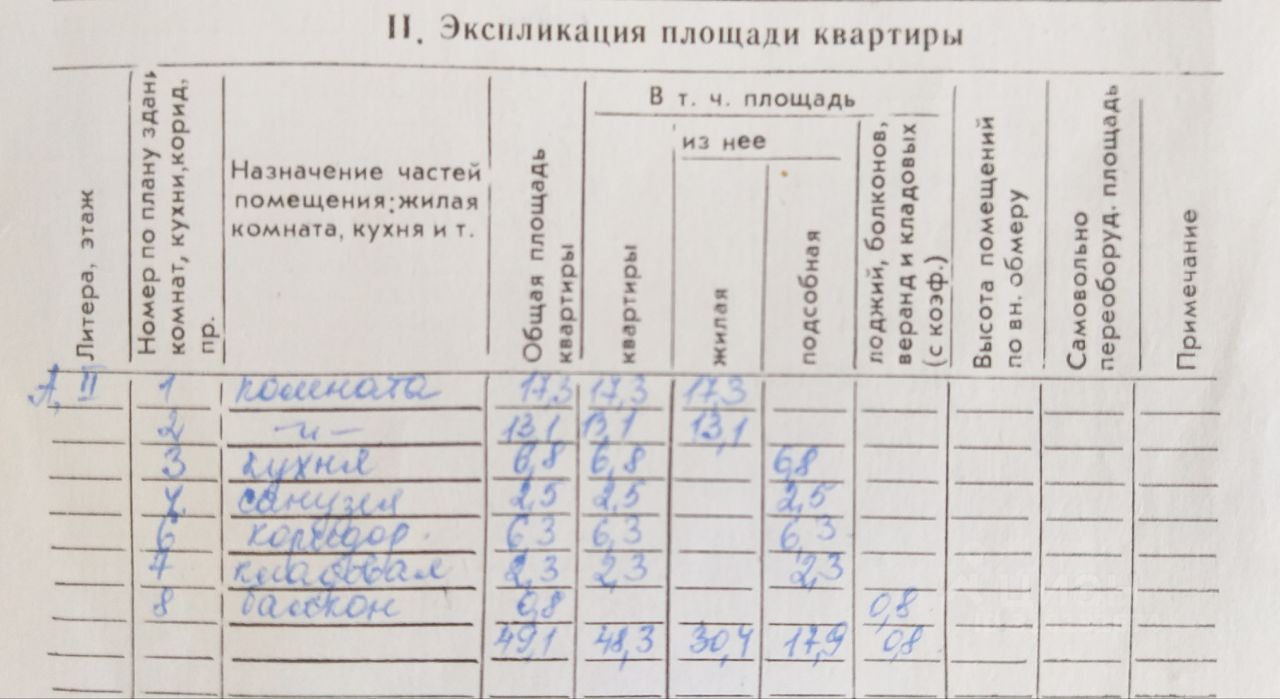 II. Экспликация площади квартиры
Литера, этаж
Номер по плану здан
комнат, кухни, корид,
пр.
Назначение частей
помещения: жилая
комната, кухня и т.
Общая площадь
квартиры
В т. ч. площадь
квартиры
из нее
жилая
подсобная
лоджий, болконов,
веранд и кладовых
(с коэф.)
Высота помещений
по вн. обмеру
Самовольно
переоборуд. площадь
Примечание
А, II 1 комната 17,3 17,3 17,3
2 -и- 13,1 13,1 13,1
3 кухня 6,8 6,8 6,8
санузел 2,5 2,5 2,5
6 коридор 6,3 6,3 6,3
7 кладовая 2,3 2,3 2,3
8 балкон 0,8 0,8
49,1 48,3 30,4 17,9 0,8